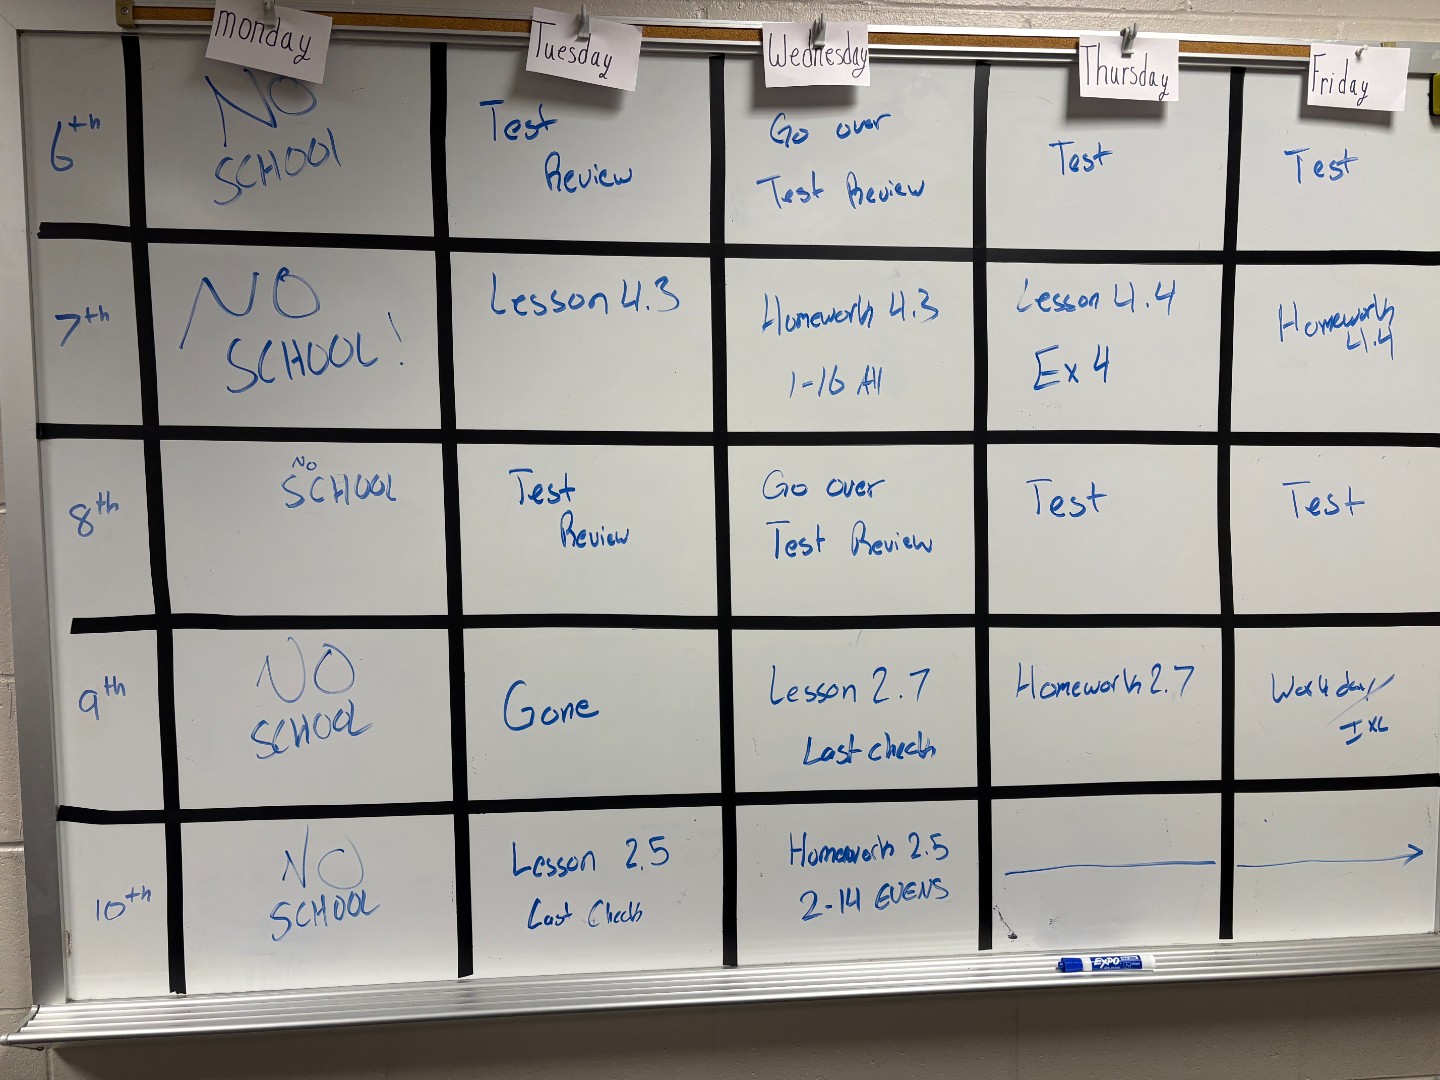 monday
Tuesday
Wednesday
Thursday
Friday
6th
NO
SCHOOL
Test
Review
Go over
Test Review
Test
Test
7th
NO
SCHOOL!
Lesson 4.3
Homework 4.3
1-16 All
Lesson 4.4
Ex 4
Homework
4.4
8th
No
SCHOOL
Test
Review
Go over
Test Review
Test
Test
9th
NO
SCHOOL
Gone
Lesson 2.7
Last check
Homework 2.7
Work day/
IXL
10th
NO
SCHOOL
Lesson 2.5
Last Check
Homework 2.5
2-14 EVENS
EXPO